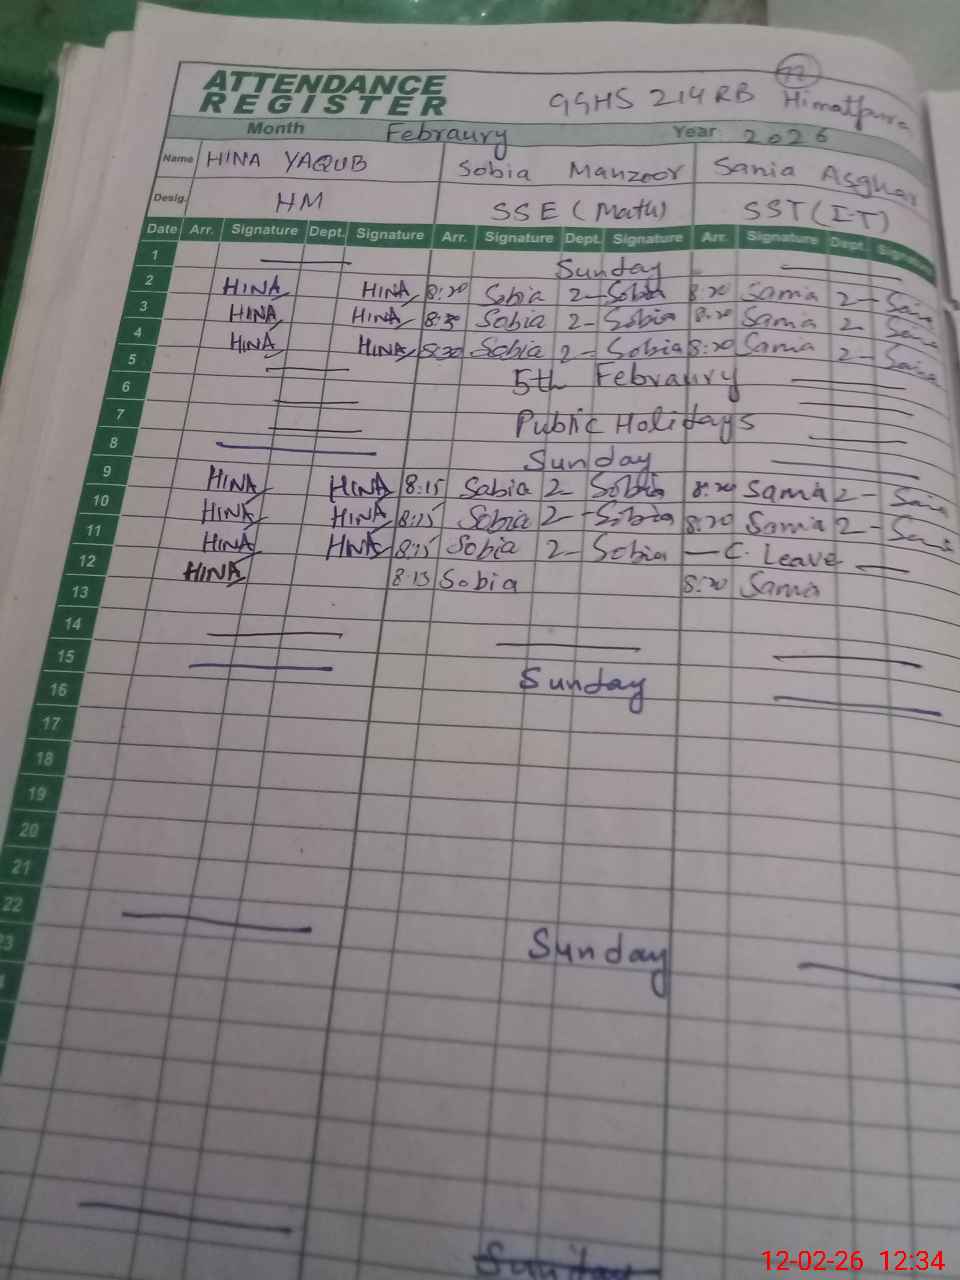 72
ATTENDANCE REGISTER GGHS 214 RB Himatpura
Month Febraury Year 2026
Name HINA YAQUB Sobia Manzoor Sania Asghar
Desig. HM SSE (Math) SST (I.T)
Date Arr. Signature Dept. Signature Arr. Signature Dept. Signature Arr. Signature Dept. Signature
1 Sunday
2 HINA HINA 8:20 Sobia 2 - Sobia 8:20 Sania 2 -
3 HINA HINA 8:30 Sobia 2 - Sobia 8:20 Sania 2
4 HINA HINA 8:30 Sobia 2 - Sobia 8:20 Sania 2 -
5 5th Febraury
6
7 Public Holidays
8 Sunday
9 HINA HINA 8:15 Sobia 2 - Sobia 8:20 Sania 2 -
10 HINA HINA 8:15 Sobia 2 - Sobia 8:20 Sania 2 -
11 HINA HINA 8:15 Sobia 2 - Sobia — C. Leave —
12 HINA 8:15 Sobia 8:20 Sania
13
14
15 Sunday
16
17
18
19
20
21
22 Sunday
23
Sunday
12-02-26 12:34